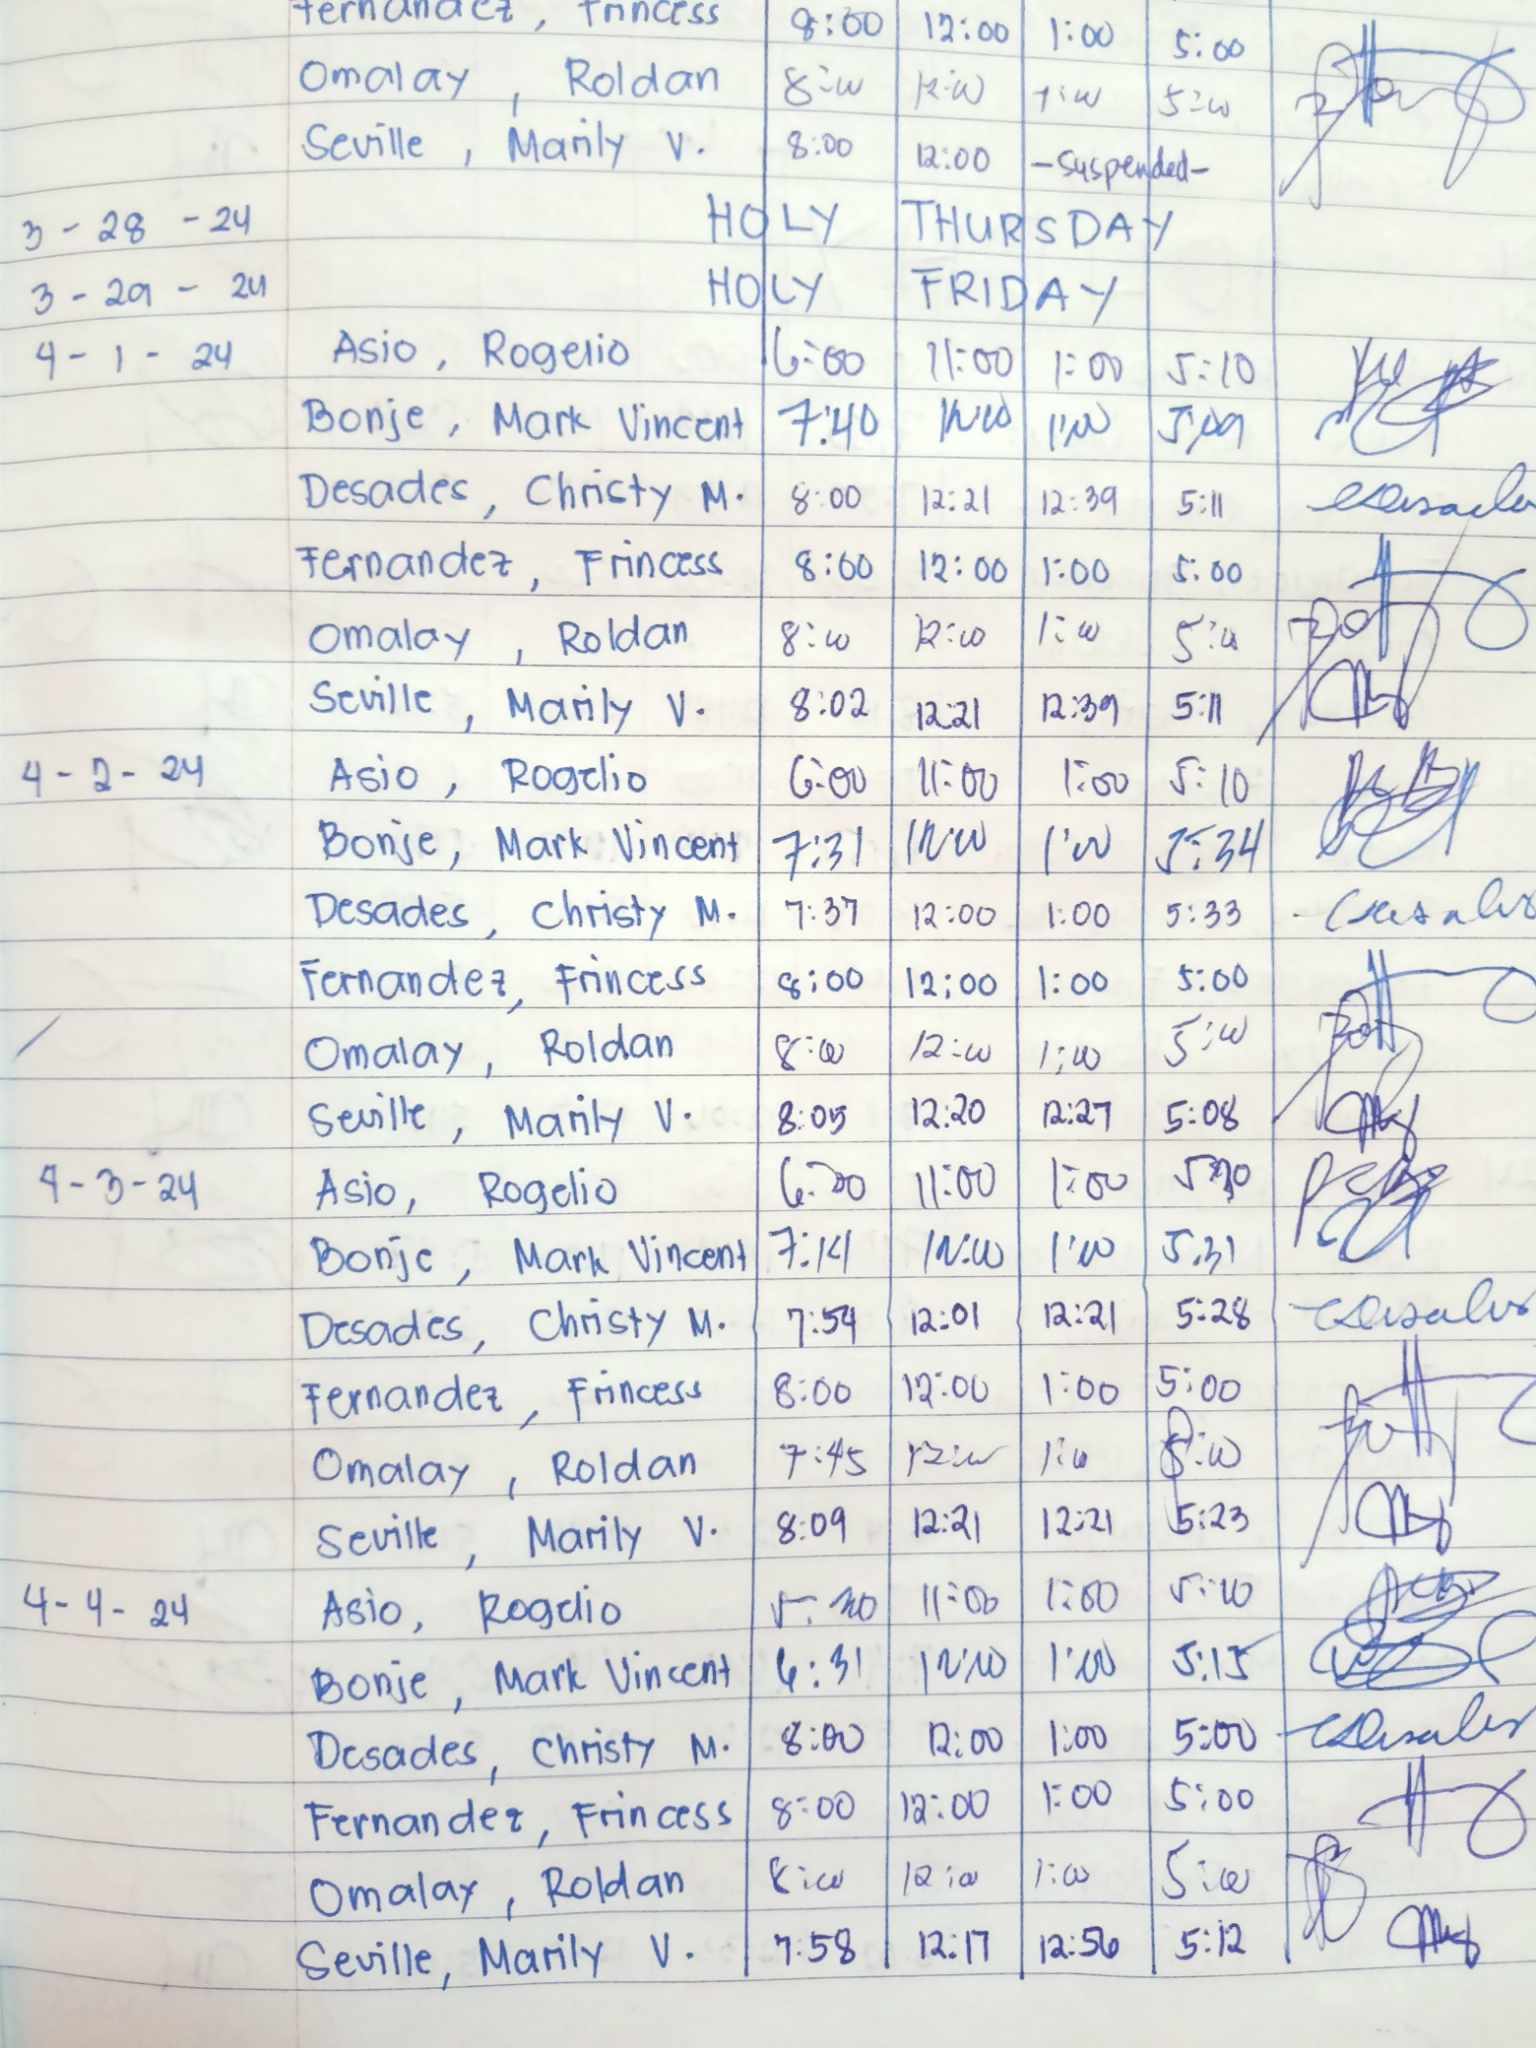 Fernandez, Princess 8:00 12:00 1:00 5:00
Omalay, Roldan 8:00 12:00 1:00 5:00
Seville, Marily V. 8:00 12:00 -Suspended-
3-28-24 HOLY THURSDAY
3-29-24 HOLY FRIDAY
4-1-24 Asio, Rogelio 6:00 11:00 1:00 5:10
Bonje, Mark Vincent 7:40 12:00 1:00 5:09
Desades, Christy M. 8:00 12:21 12:39 5:11
Fernandez, Princess 8:00 12:00 1:00 5:00
Omalay, Roldan 8:00 12:00 1:00 5:00
Seville, Marily V. 8:02 12:21 12:39 5:11
4-2-24 Asio, Rogelio 6:00 11:00 1:00 5:10
Bonje, Mark Vincent 7:31 12:00 1:00 5:34
Desades, Christy M. 7:37 12:00 1:00 5:33
Fernandez, Princess 8:00 12:00 1:00 5:00
Omalay, Roldan 8:00 12:00 1:00 5:00
Seville, Marily V. 8:05 12:20 12:27 5:08
4-3-24 Asio, Rogelio 11:00 1:00
Bonje, Mark Vincent 7:14 12:00 1:00 5:31
Desades, Christy M. 7:54 12:01 12:21 5:28
Fernandez, Princess 8:00 12:00 1:00 5:00
Omalay, Roldan 7:45 12:00 1:00 5:00
Seville, Marily V. 8:09 12:21 12:21 5:23
4-4-24 Asio, Rogelio 11:00 1:00 5:10
Bonje, Mark Vincent 6:31 12:00 1:00 5:15
Desades, Christy M. 8:00 12:00 1:00 5:00
Fernandez, Princess 8:00 12:00 1:00 5:00
Omalay, Roldan 8:00 12:00 1:00 5:00
Seville, Marily V. 7:58 12:17 12:56 5:12